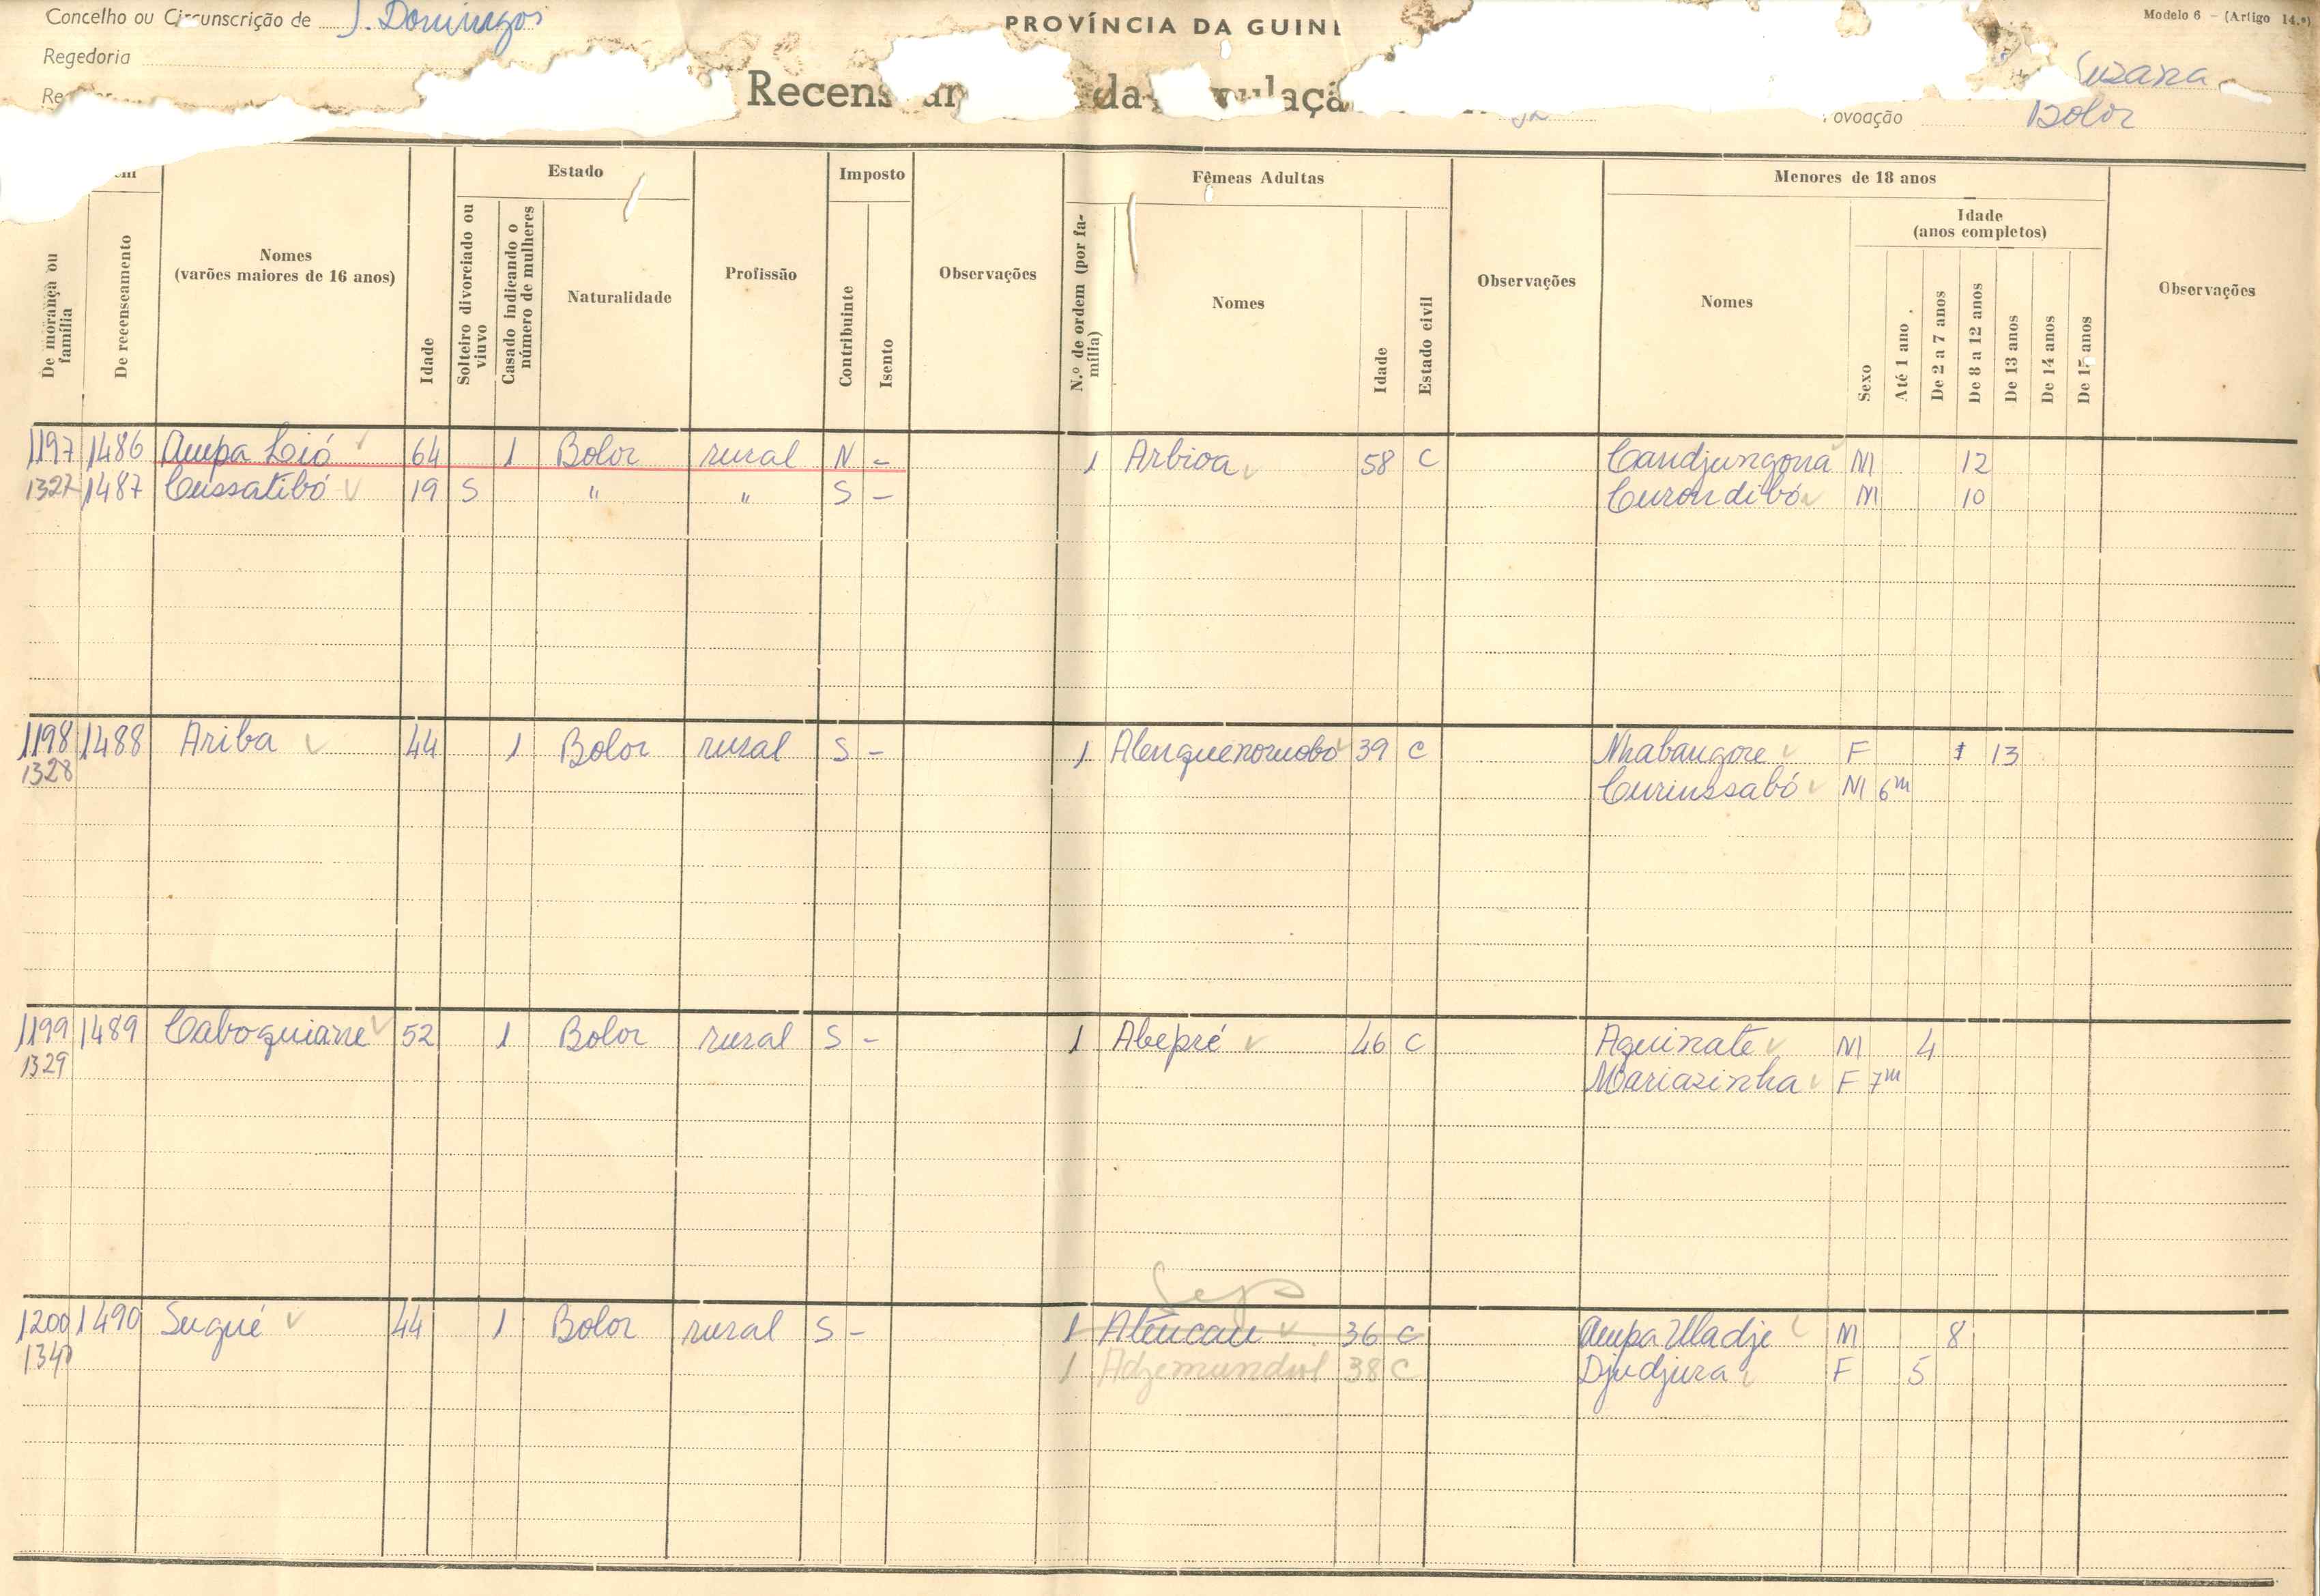 Concelho ou Circunscrição de S. Domingos
PROVÍNCIA DA GUIN
Modelo 6 - (Artigo 14.º)
Regedoria
Suzana
Recens da ulaçã
ovoação Bolor
Estado
Imposto
Fêmeas Adultas
Menores de 18 anos
De morança ou família
De recenseamento
Nomes
(varões maiores de 16 anos)
Idade
Solteiro divorciado ou viuvo
Casado indicando o número de mulheres
Naturalidade
Profissão
Contribuinte
Isento
Observações
N.º de ordem (por família)
Nomes
Idade
Estado civil
Observações
Nomes
Sexo
Idade
(anos completos)
Até 1 ano
De 2 a 7 anos
De 8 a 12 anos
De 13 anos
De 14 anos
De 15 anos
Observações
1197 1486 Ampa Loió 64 1 Bolor rural N - 1 Arbioa 58 C Candjungona M 12
1327 1487 Cussatibó 19 S " " S - Curondibó M 10
1198 1488 Ariba 44 1 Bolor rural S - 1 39 C Nhabangore F 13
1328 Curiussabó M 6m
1199 1489 Caboquiane 52 1 Bolor rural S - 1 Abepré 46 C Aquinate M 4
1329 Mariazinha F 7m
1200 1490 Sugué 44 1 Bolor rural S - 1 Alencau 36 C Ampa Uladje M 8
1 38 C Djudjura F 5